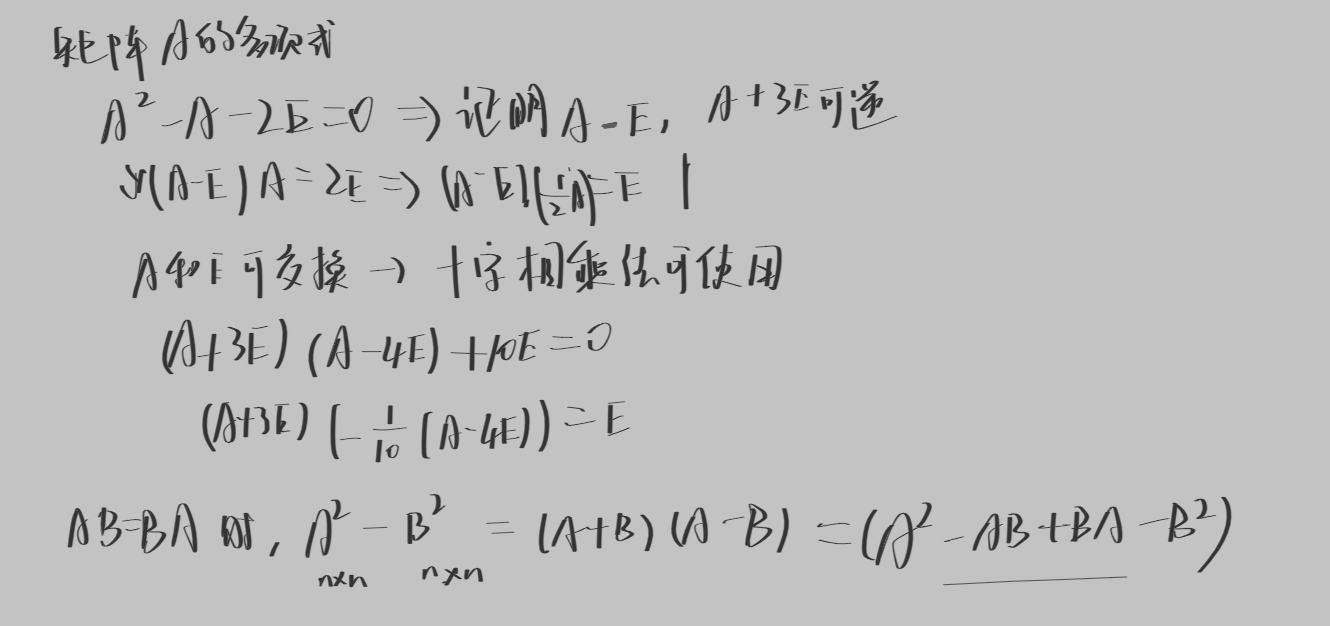 矩阵A的多项式
A² - A - 2E = 0 ⇒ 证明 A - E, A + 3E可逆
(A-E)A = 2E ⇒ (A-E)(½A) = E
A和E可交换 → 十字相乘法可使用
(A+3E)(A-4E)+10E=0
(A+3E)(-1/10(A-4E))=E
AB=BA时, A² - B² = (A+B)(A-B) = (A² - AB + BA - B²)
n×n n×n